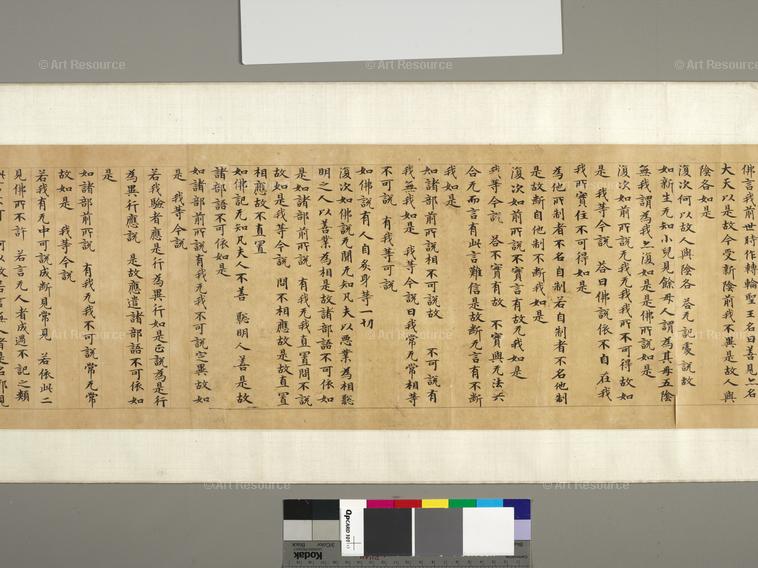 佛言我前世時作轉輪聖王名曰善見亦名
大天以是故今受新陰前我不異是故人與
陰各如是
復次何以故人與陰各 答无記處說故
如新生无知小兒見餘母人謂為其母五陰
無我謂為我亦復如是是佛所說如是
復次如前所說无我无我我所不可得故如
是 我等今說 答曰佛說依不自在我
我所實住不可得如是
為他所制者不名自制若自制者不名他制
是故斷自他制不斷我如是
復次如前所說不實言有故无我如是
我等今說 答不實有故 不實與无法共
合无而言有此言難信是故斷无言有不斷
我如是
如諸部前所說相不可說故 不可說有
我無我如是 我等今說曰我常无常相等
不可說 有我等可說
如佛說有人自炙身等一切
復次如佛說无聞无知凡夫以惡業為相聡
明之人以善業為相是故諸部語不可依如
是如諸部前所說 有我无我直置問不說
故如是我等今說 問不相應故是故直置
相應故不直置
如佛記无知凡夫人不善 聡明人善是故
諸部語不可依如是
如諸部前所說有我无我不可說空異故如
是 我等今說
若我驗者應是行為異行如是正說為是行
為異行應說 是故應遣諸部語不可依如
是
如諸部前所說 有我无我不可說常无常
故如是 我等今說
若我有无中可說成斷見常見 若依此二
見佛所不許 若言无人者成過不記之類
© Art Resource
© Art Resource
© Art Resource
© Art Resource
© Art Resource
© Art Resource
QPCARD 101
Kodak
Black
3/Color
Black